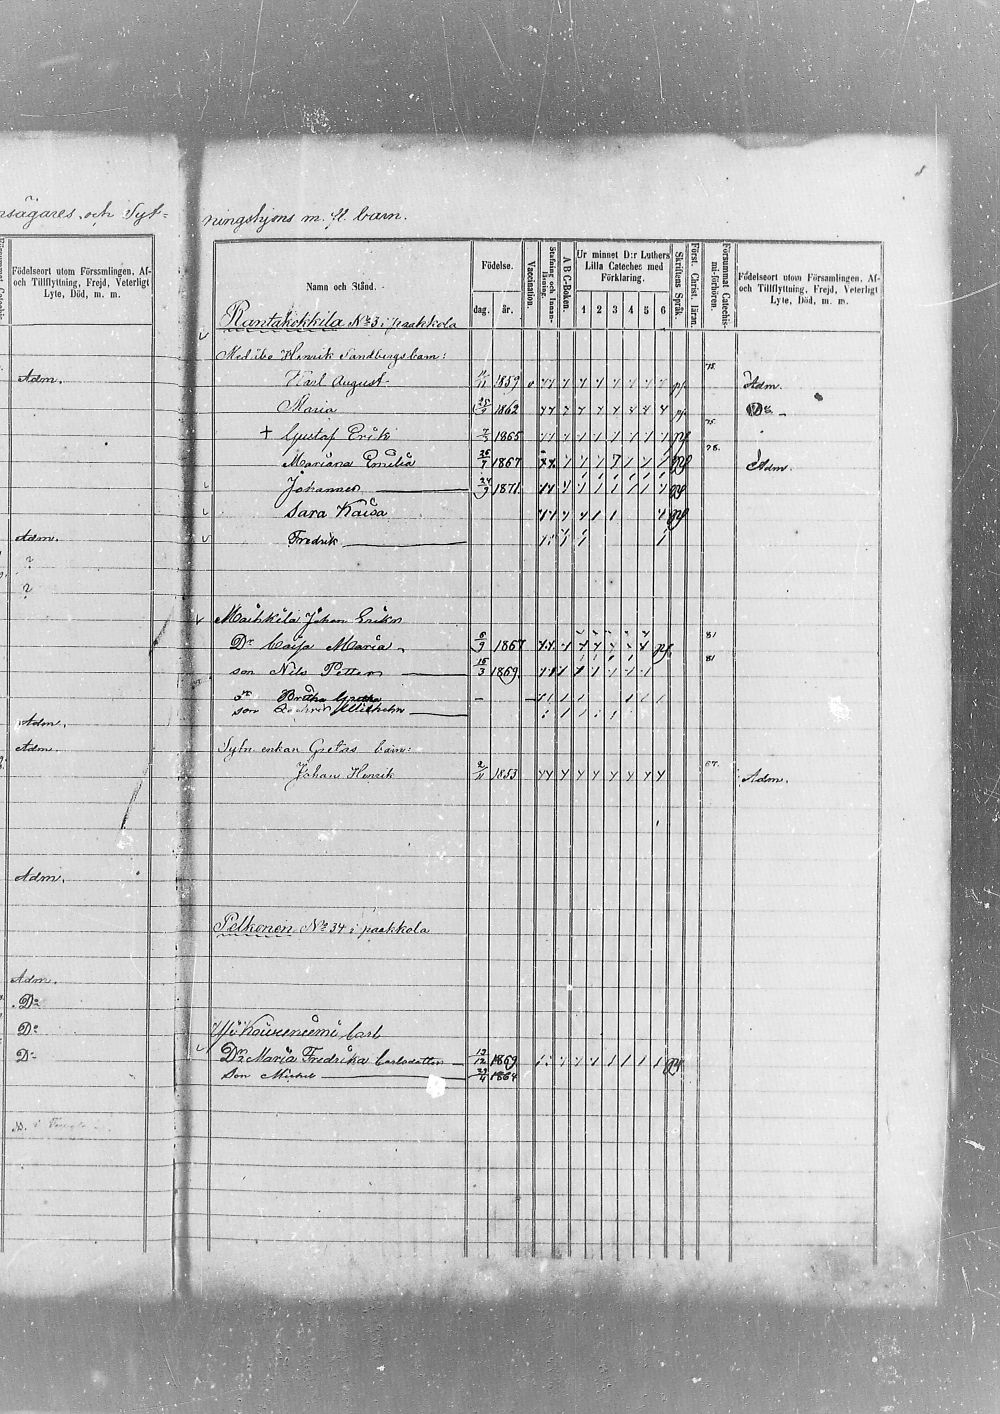 nsägares och Syt=
ningshjons m. fl. barn.
Försummat Catechis-
Födelseort utom Församlingen, Af-
och Tillflyttning, Frejd, Veterligt
Lyte, Död, m. m.
Adm.
Adm.
?
?
Adm.
Adm.
Adm.
Adm.
Do
Do
Do
Namn och Stånd.
Födelse.
dag. år.
Vaccination.
Stafning och Innan-
läsning.
A B C-Boken.
Ur minnet D:r Luthers
Lilla Cateches med
Förklaring.
1 2 3 4 5 6
Skriftens Språk.
Först. Christ. Läran.
Försummat Catechis-
mi-förhören.
Födelseort utom Församlingen, Af-
och Tillflyttning, Frejd, Veterligt
Lyte, Död, m. m.
Rantakokkila No 3 i paakkola
Med ibo Henrik Sandbergs barn:
Karl August 11/11 1859 78. Adm.
Maria 25/9 1862 Do
+ Gustaf Erik 7/5 1865 75.
Mariana Emilia 26/7 1867 78. Adm.
Johannes 24/9 1871
Sara Kaisa
Fredrik
Johan Erik
Dr Caisa Maria 6/9 1867 81
son Nils Petter 15/3 1869 81
dr Britha Gretha
son Wilhelm
Sytn. enkan Gretas barn:
Johan Henrik 2/11 1853 67. Adm.
Pelkonen No 34 i paakkola
Carl
Dr Maria Fredrika Carlsdotter 12/12 1869
Son Michel 29/4 1864